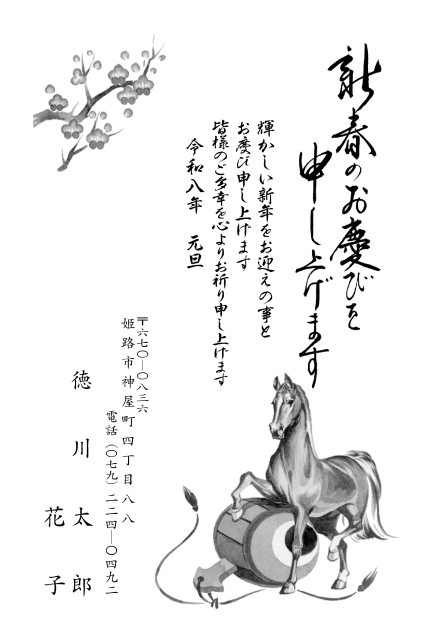 新春のお慶びを
申し上げます
輝かしい新年をお迎えの事と
お慶び申し上げます
皆様のご多幸を心よりお祈り申し上げます
令和八年　元旦
〒六七〇―〇八三六
姫路市神屋町四丁目八八
電話（〇七九）二二四―〇四九二
徳川太郎
花子